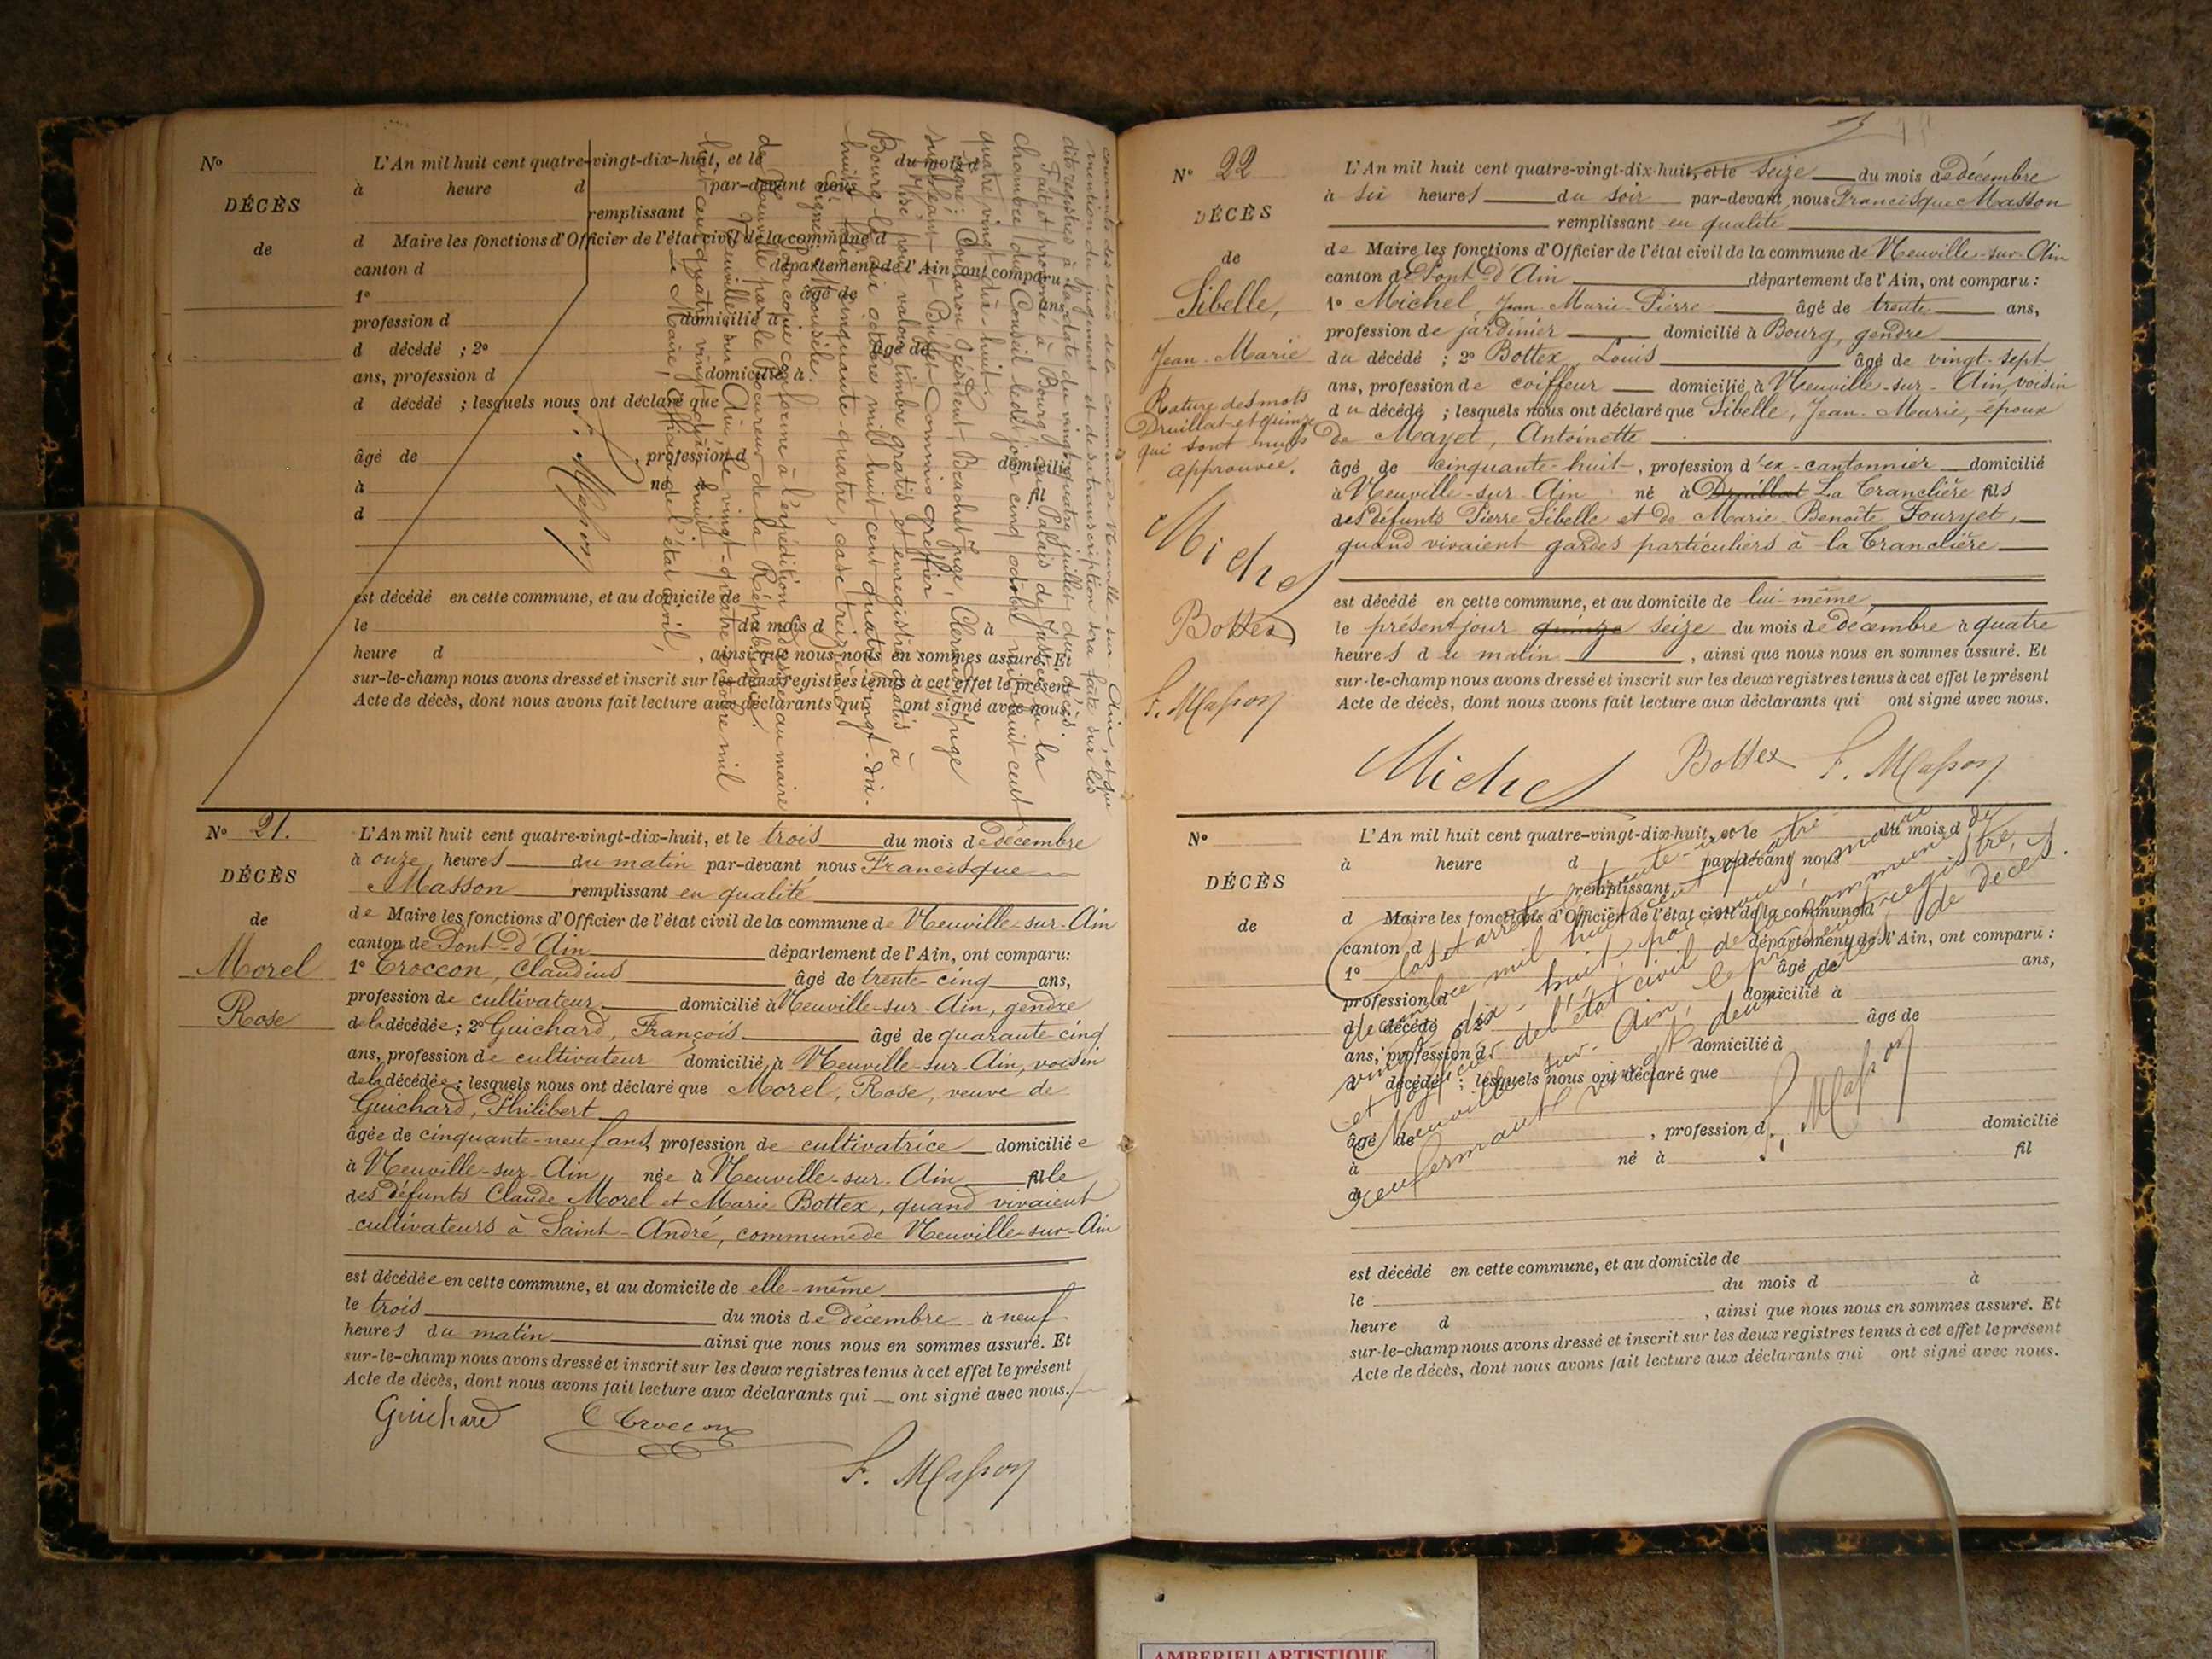 courante des décès de la commune de Neuville-sur-Ain, et que
mention du jugement et de sa transcription sera faite sur les
dits registres à la date du vingt-quatre juillet du décès.
Fait et prononcé à Bourg, au Palais de Justice en la
Chambre du Conseil ledit jour cinq octobre mil huit cent
quatre vingt dix-huit.
Président, Brachet juge, juge
suppléant Buffet Commis greffier
Visé pour valoir timbre gratis et enregistré gratis à
Bourg le octobre mil huit cent quatre vingt-dix-
huit, folio cinquante-quatre, case treizième
Signé:
Pour copie conforme à l'expédition adressée au maire
de Neuville par le Procureur de la République.
Neuville-sur-Ain, le vingt-quatre octobre mil
huit cent quatre vingt dix huit
Le Maire, Officier de l'état civil,
F. Masson
No
DÉCÈS
de
L'An mil huit cent quatre-vingt-dix-huit, et le du mois d
à heure d par-devant nous
remplissant
d Maire les fonctions d'Officier de l'état civil de la commune d
canton d département de l'Ain, ont comparu:
1o âgé de ans,
profession d domicilié à
d décédé ; 2o âgé de
ans, profession d domicilié à
d décédé ; lesquels nous ont déclaré que
âgé de , profession d domicilié
à né à fil
d
est décédé en cette commune, et au domicile de
le du mois d à
heure d , ainsi que nous nous en sommes assuré. Et
sur-le-champ nous avons dressé et inscrit sur les deux registres tenus à cet effet le présent
Acte de décès, dont nous avons fait lecture aux déclarants qui ont signé avec nous.
No 21.
DÉCÈS
de
Morel
Rose
L'An mil huit cent quatre-vingt-dix-huit, et le trois du mois de décembre
à onze heures du matin par-devant nous Francisque
Masson remplissant en qualité
de Maire les fonctions d'Officier de l'état civil de la commune de Neuville-sur-Ain
canton de Pont-d'Ain département de l'Ain, ont comparu:
1o Troccon, Claudius âgé de trente cinq ans,
profession de cultivateur domicilié à Neuville-sur-Ain, gendre
de la décédée; 2o Guichard, François âgé de quarante cinq
ans, profession de cultivateur domicilié à Neuville-sur-Ain, voisin
de la décédée; lesquels nous ont déclaré que Morel, Rose, veuve de
Guichard, Philibert
âgée de cinquante-neuf ans, profession de cultivatrice domiciliée
à Neuville-sur-Ain née à Neuville-sur-Ain fille
des défunts Claude Morel et Marie Bottex, quand vivaient
cultivateurs à Saint-André, commune de Neuville-sur-Ain
est décédée en cette commune, et au domicile de elle-même
le trois du mois de décembre à neuf
heures du matin ainsi que nous nous en sommes assuré. Et
sur-le-champ nous avons dressé et inscrit sur les deux registres tenus à cet effet le présent
Acte de décès, dont nous avons fait lecture aux déclarants qui ont signé avec nous.
Guichard C Troccon
F. Masson
No 22
DÉCÈS
de
Sibelle,
Jean-Marie
Rature des mots
Druillat et quinze
qui sont nuls
approuvée.
Michel
Bottex
F. Masson
L'An mil huit cent quatre-vingt-dix-huit, et le seize du mois de décembre
à six heures du soir par-devant nous Francisque Masson
remplissant en qualité
de Maire les fonctions d'Officier de l'état civil de la commune de Neuville-sur-Ain
canton de Pont-d'Ain département de l'Ain, ont comparu:
1o Michel, Jean-Marie-Pierre âgé de trente ans,
profession de jardinier domicilié à Bourg, gendre
du décédé ; 2o Bottex, Louis âgé de vingt-sept
ans, profession de coiffeur domicilié à Neuville-sur-Ain, voisin
du décédé ; lesquels nous ont déclaré que Sibelle, Jean-Marie, époux
de Mayet, Antoinette
âgé de cinquante-huit, profession d'ex-cantonnier domicilié
à Neuville-sur-Ain né à Druillat La Tranclière fils
des défunts Pierre Sibelle et de Marie-Benoîte Fouryet,
quand vivaient gardes particuliers à la Tranclière
est décédé en cette commune, et au domicile de lui-même
le présent jour quinze seize du mois de décembre à quatre
heures du matin , ainsi que nous nous en sommes assuré. Et
sur-le-champ nous avons dressé et inscrit sur les deux registres tenus à cet effet le présent
Acte de décès, dont nous avons fait lecture aux déclarants qui ont signé avec nous.
Michel Bottex F. Masson
No
DÉCÈS
de
L'An mil huit cent quatre-vingt-dix-huit, et le du mois d
à heure d par-devant nous
remplissant
d Maire les fonctions d'Officier de l'état civil de la commune d
canton d département de l'Ain, ont comparu:
1o âgé de ans,
profession d domicilié à
d décédé ; 2o âgé de
ans, profession d domicilié à
d décédé ; lesquels nous ont déclaré que
âgé de , profession d domicilié
à né à fil
d
est décédé en cette commune, et au domicile de
le du mois d à
heure d , ainsi que nous nous en sommes assuré. Et
sur-le-champ nous avons dressé et inscrit sur les deux registres tenus à cet effet le présent
Acte de décès, dont nous avons fait lecture aux déclarants qui ont signé avec nous.
Clos et arrêté le trente-un
décembre mil huit cent quatre-
vingt dix-huit, par nous, maire
et officier de l'état civil de la commune de
Neuville-sur-Ain, le présent registre,
renfermant vingt deux actes de décès.
F. Masson
AMBERIEU ARTISTIQUE